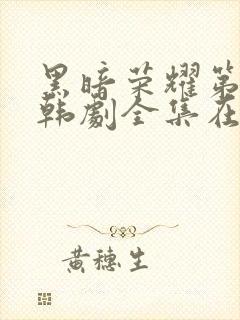 黑暗荣耀第
韩剧全集在
黄穗生